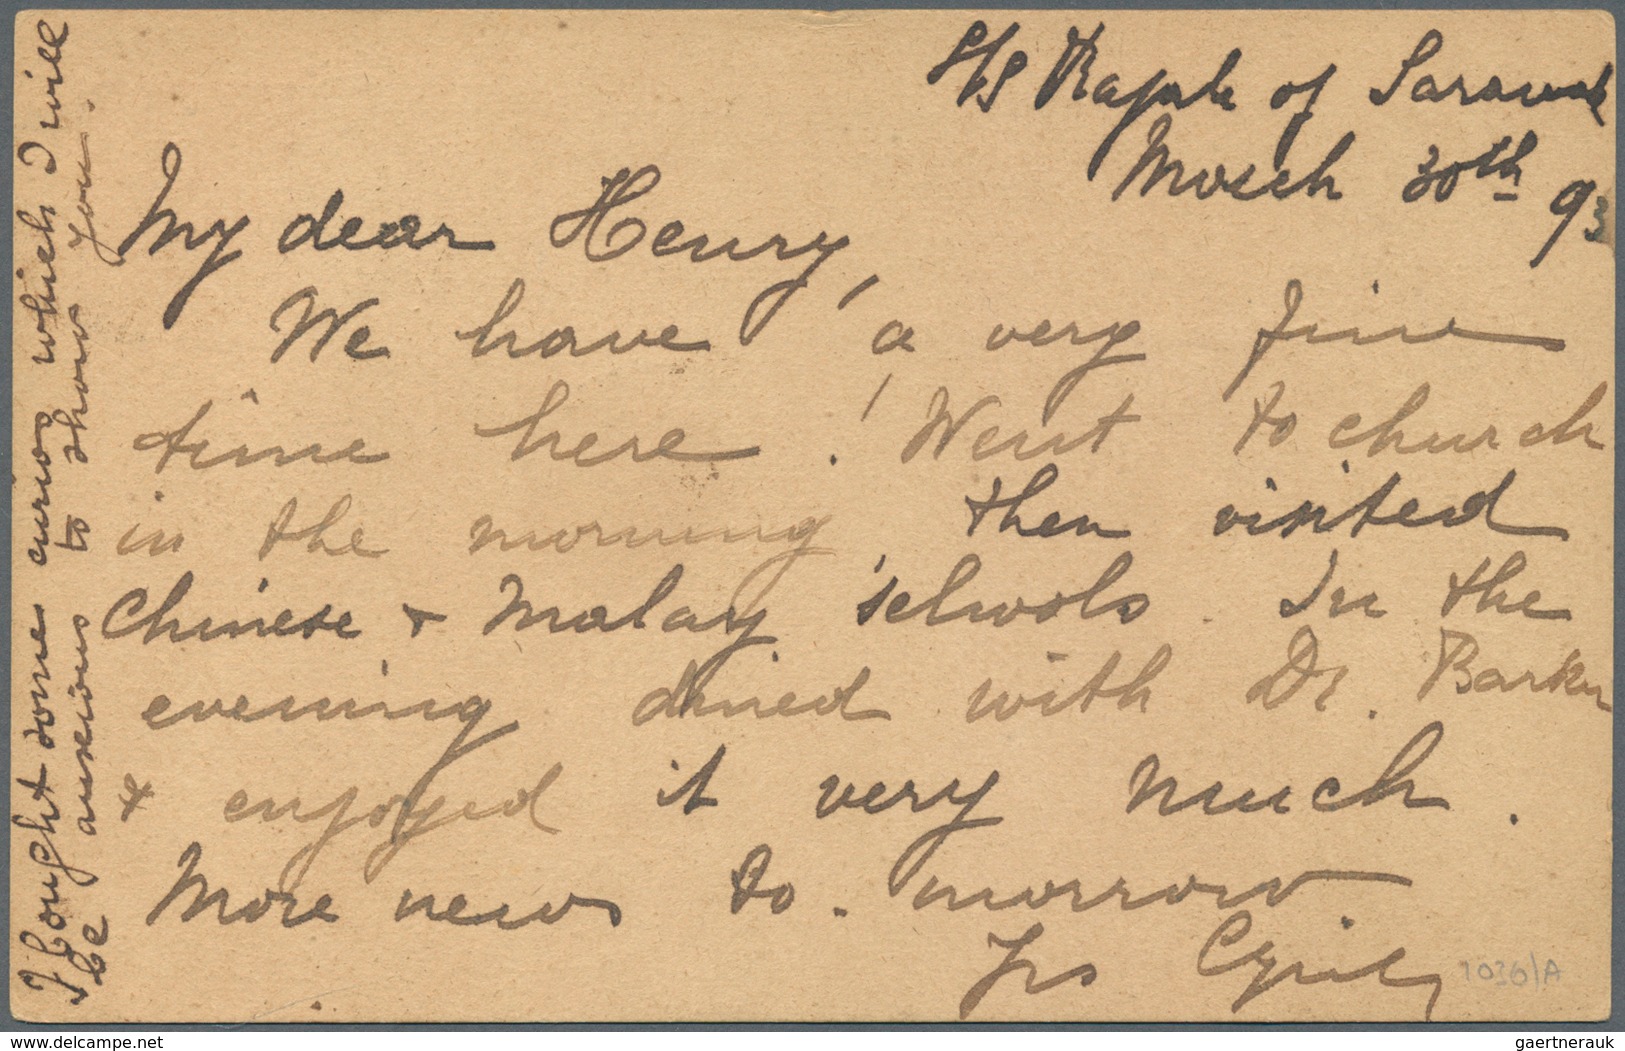 S/S Rajah of Sarawak
March 30th 93
My dear Henry,
We have a very fine
time here! Went to church
in the morning, then visited
Chinese + Malay schools. In the
evening dined with Dr. Barker
+ enjoyed it very much.
More news to-morrow.
Yrs Cyril
I bought some curios which I will
be anxious to show you.
1036/A
delcampe.net
gaertnerauk